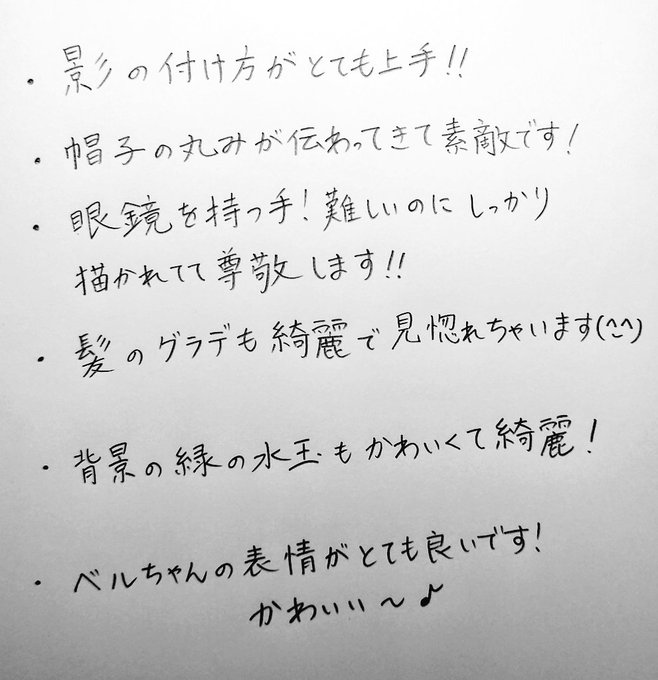 ・影の付け方がとても上手!!
・帽子の丸みが伝わってきて素敵です!
・眼鏡を持つ手!難しいのにしっかり
描かれてて尊敬します!!
・髪のグラデも綺麗で見惚れちゃいます(^^)
・背景の緑の水玉もかわいくて綺麗!
・ベルちゃんの表情がとても良いです!
かわいい〜♪